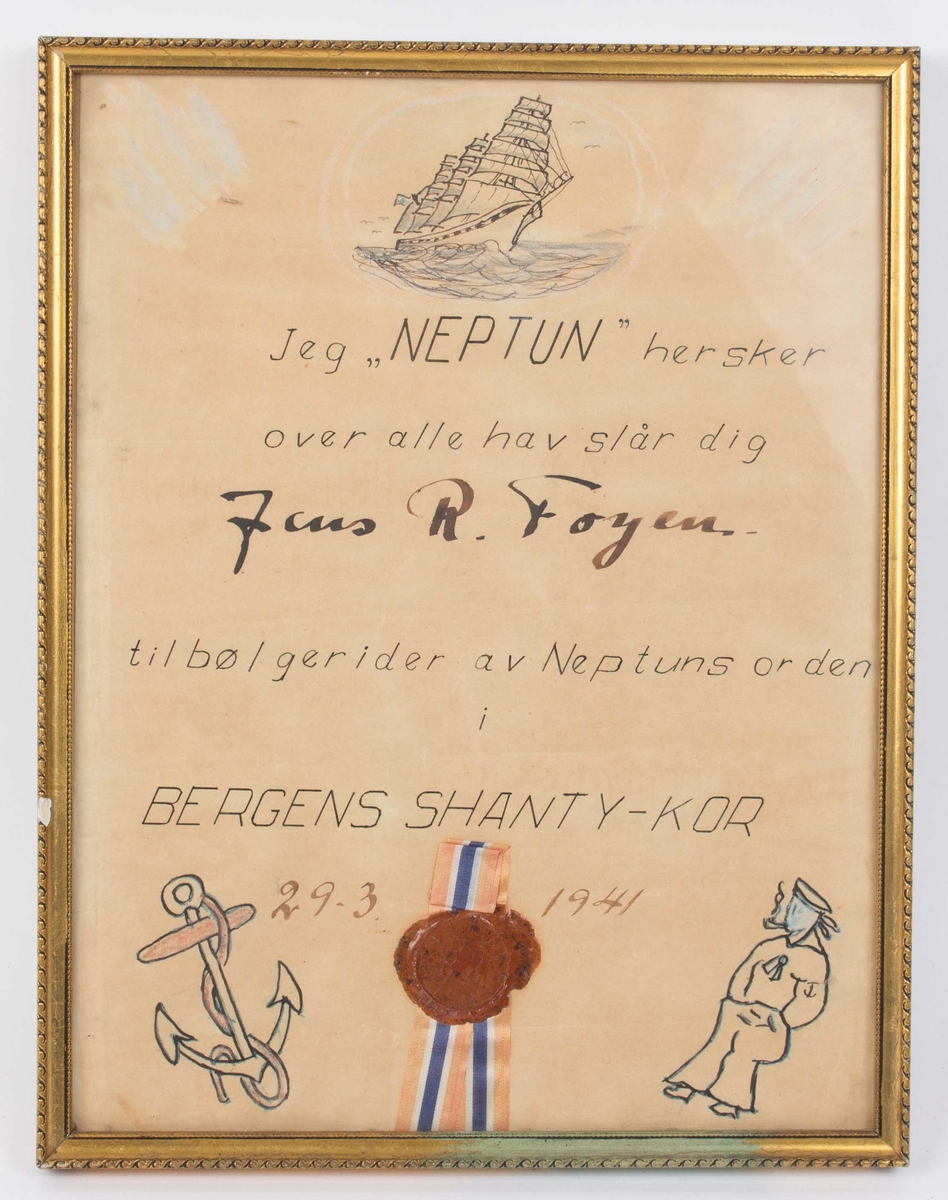 Jeg „NEPTUN” hersker
over alle hav slår dig
Jens R. Foyen.
til bølgerider av Neptuns orden
i
BERGENS SHANTY-KOR
29.3. 1941